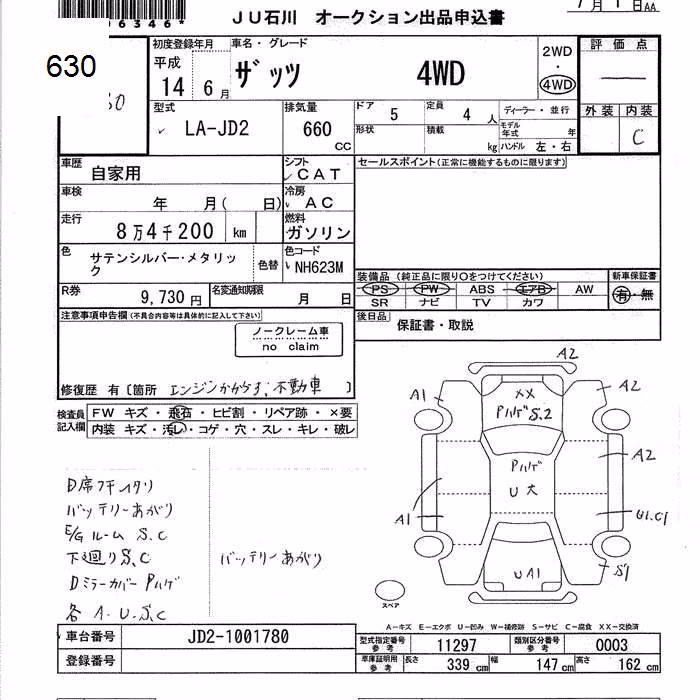 16346*
JU石川 オークション出品申込書
7月1日AA
630
初度登録年月 車名・グレード
平成 14年 6月 ザッツ 4WD
2WD・4WD
評価点
外装 内装
C
型式 LA-JD2
排気量 660 CC
ドア 5 定員 4人
形状 積載 kg
ディーラー・並行
モデル年式 年
ハンドル 左・右
車歴 自家用
シフト CAT
セールスポイント(正常に機能するものに限ります)
車検 年 月( 日)
冷房 AC
走行 8万4千200 km
燃料 ガソリン
色 サテンシルバー・メタリック
色替
色コード NH623M
装備品 (純正品に限り○をつけてください)
新車保証書
PS PW ABS エアB AW
SR ナビ TV カワ
有・無
R券 9,730円
名変通知期限 月 日
後日品 保証書・取説
注意事項申告欄(不具合内容等は具体的に記入して下さい)
ノークレーム車
no claim
修復歴 有 [箇所 エンジンかからず,不動車 ]
検査員記入欄
FW キズ・飛石・ヒビ割・リペア跡・×要
内装 キズ・汚レ・コゲ・穴・スレ・キレ・破レ
D席フチイタリ
バッテリーあがり
E/Gルーム S.C
下廻りS.C
DミラーカバーPハゲ
各 A.U.S.C
バッテリーあがり
A2
A1
XX
Pハゲ S.2
A2
Pハゲ
U大
A2
A1
U1.C1
UA1
S1
スペア
A-キズ E-エクボ U-凹み W-補修跡 S-サビ C-腐食 XX-交換済
車台番号 JD2-1001780
登録番号
型式指定番号 参考 11297
類別区分番号 参考 0003
車庫証明用 参考 長さ 339cm 幅 147cm 高さ 162cm